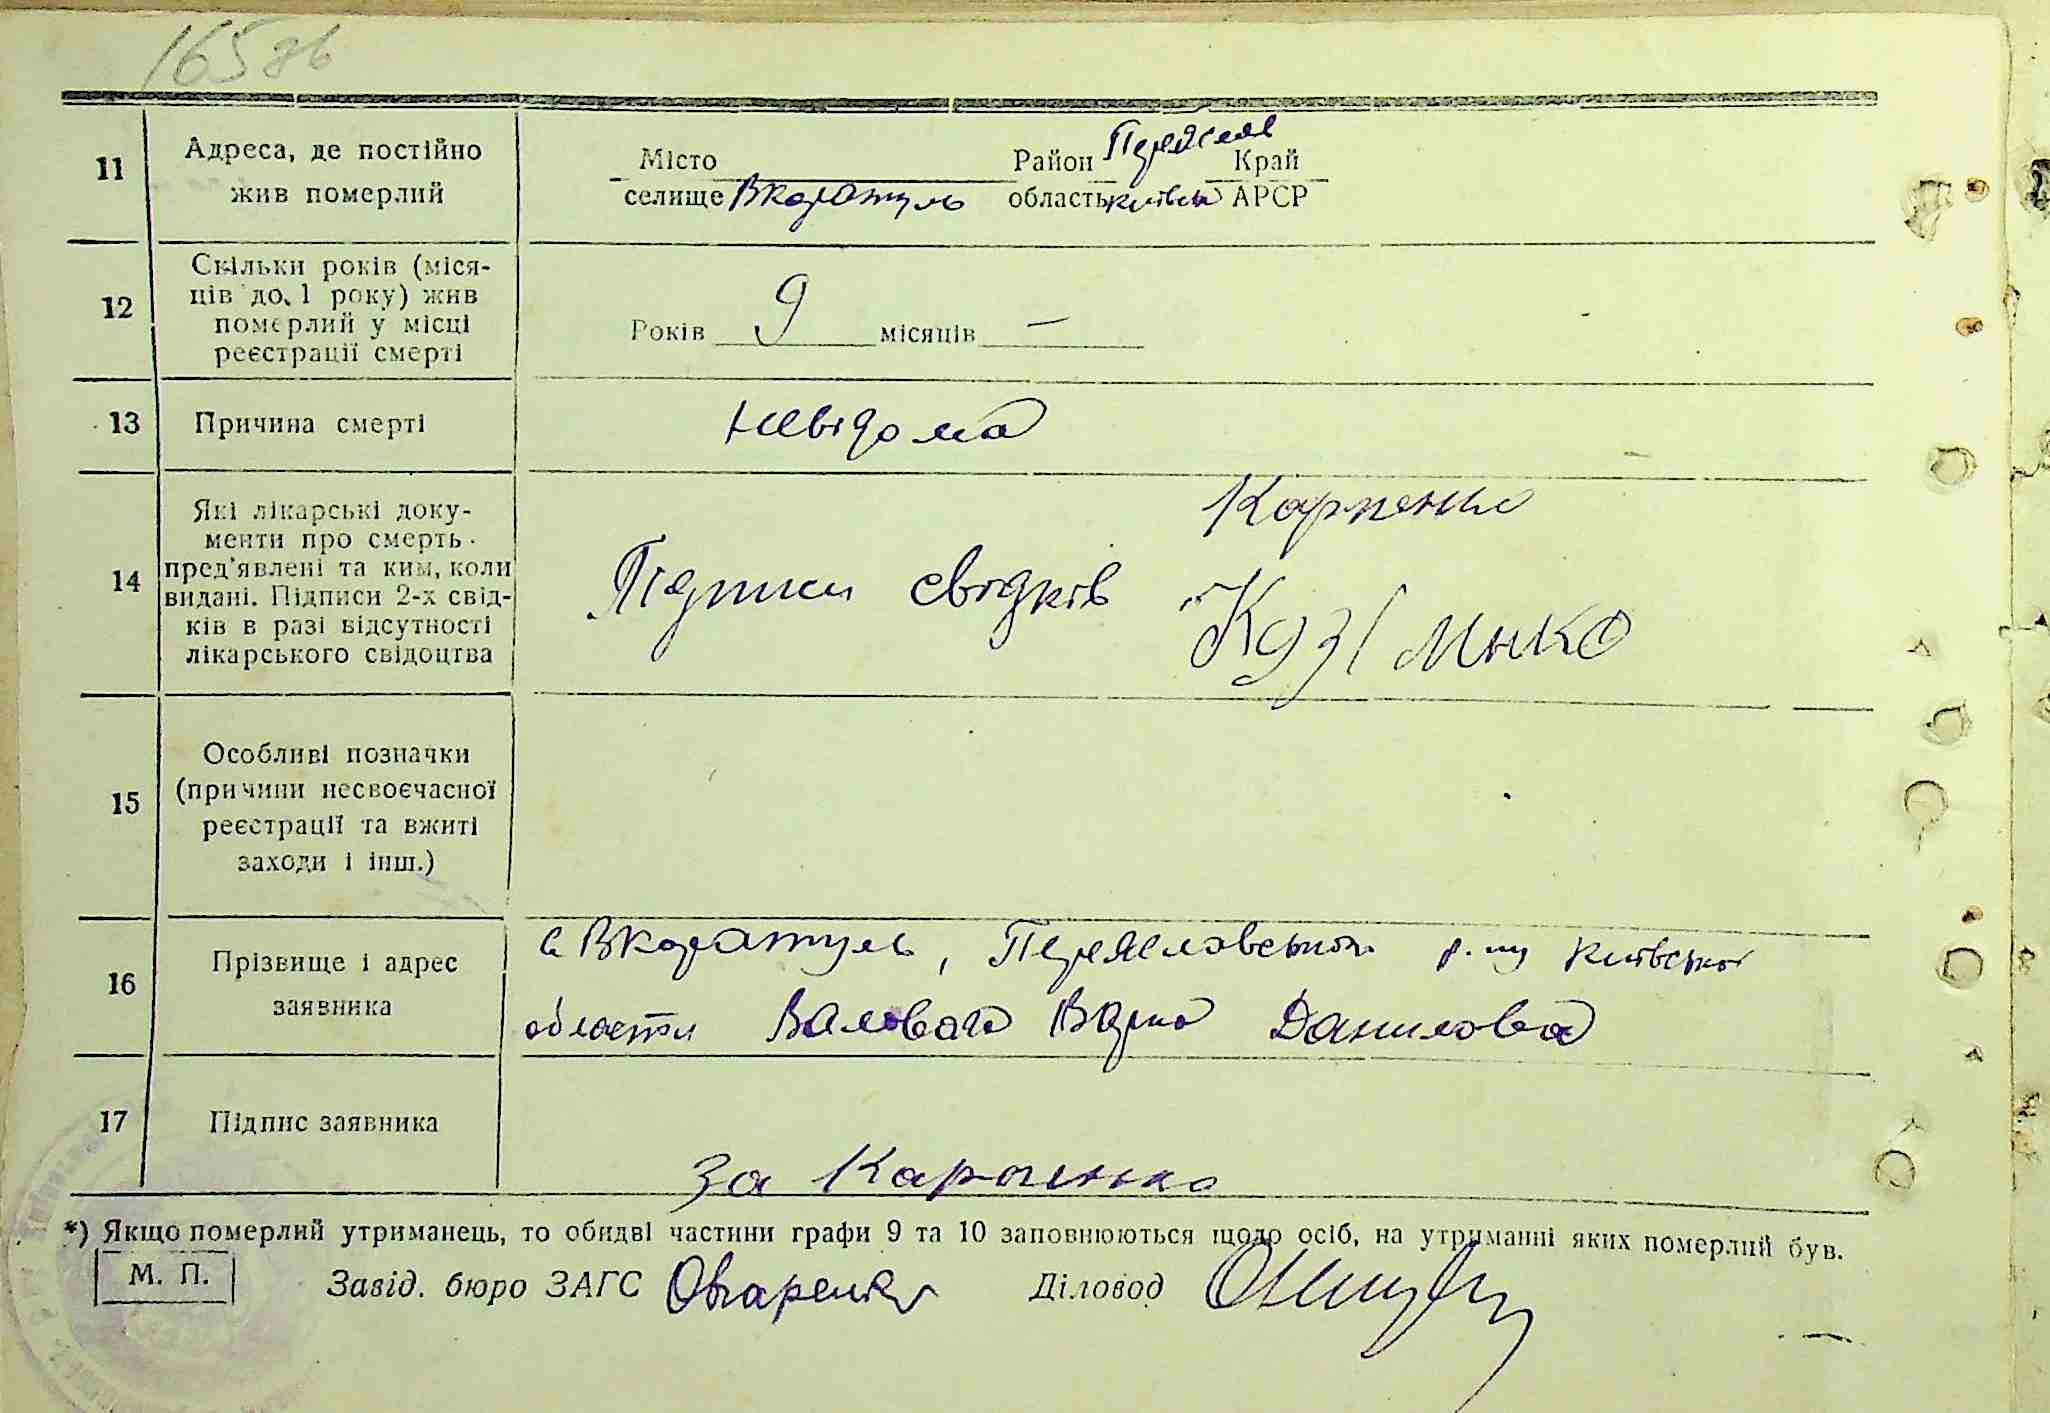 165 зв
11
Адреса, де постійно
жив померлий
Місто
Район Переяслав
Край
селище Вкаратуль
область київська АРСР
12
Скільки років (міся-
ців до 1 року) жив
померлий у місці
реєстрації смерті
Років 9 місяців —
13
Причина смерті
невідома
14
Які лікарські доку-
менти про смерть
пред'явлені та ким, коли
видані. Підписи 2-х свід-
ків в разі відсутності
лікарського свідоцтва
Карпенко
Підписи свідків
15
Особливі позначки
(причини несвоєчасної
реєстрації та вжиті
заходи і інш.)
16
Прізвище і адрес
заявника
с Вкаратуль, Переяславського р-ну Київської
області Валовая Данилова
17
Підпис заявника
За Карпенко
*) Якщо померлий утриманець, то обидві частини графи 9 та 10 заповнюються щодо осіб, на утриманні яких померлий був.
М. П.
Завід. бюро ЗАГС Овчаренко Діловод